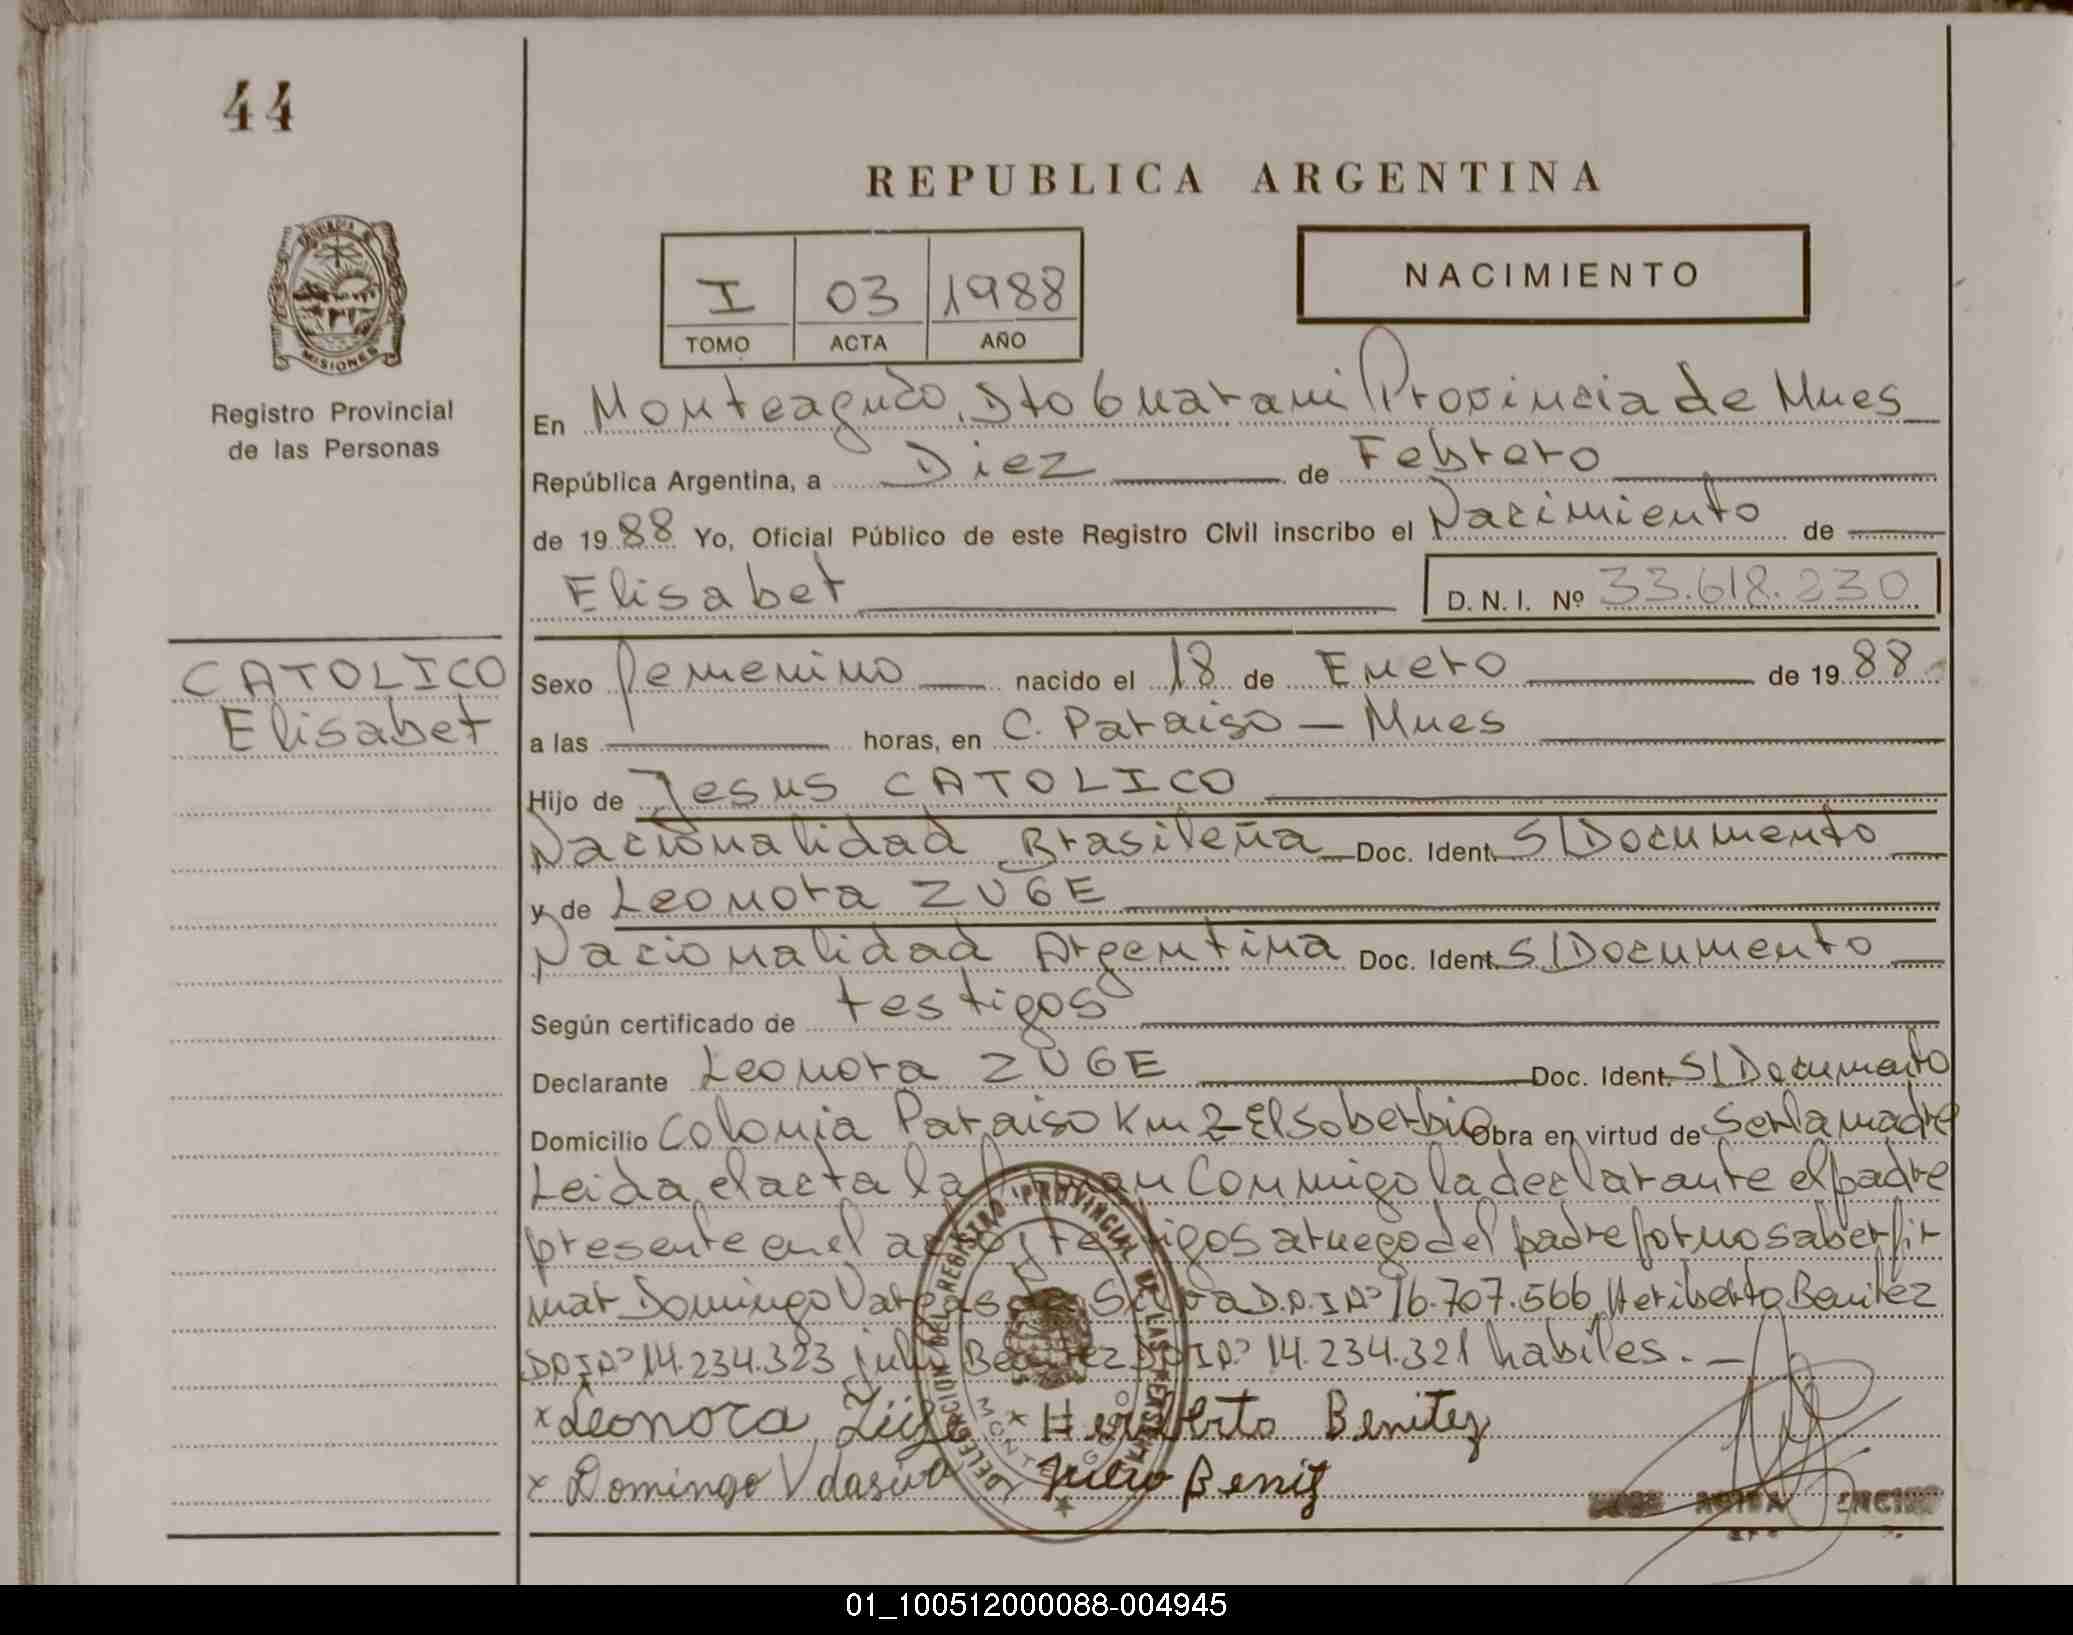 44
REPUBLICA ARGENTINA
PROVINCIA DE
MISIONES
Registro Provincial
de las Personas
I 03 1988
TOMO ACTA AÑO
NACIMIENTO
En Monteagudo, Dto Guarani Provincia de Mnes
República Argentina, a Diez de Febrero
de 1988 Yo, Oficial Público de este Registro Civil inscribo el Nacimiento de
Elisabet D. N. I. Nº 33.618.230
CATOLICO
Elisabet
Sexo femenino nacido el 18 de Enero de 1988
a las horas, en C. Paraiso - Mnes
Hijo de Jesus CATOLICO
Nacionalidad Brasileña Doc. Ident. S/Documento
y de Leonora ZUGE
Nacionalidad Argentina Doc. Ident. S/Documento
Según certificado de testigos
Declarante Leonora ZUGE Doc. Ident. S/Documento
Domicilio Colonia Paraiso Km 2 - El Soberbio Obra en virtud de Ser la madre
Leida el acta la firman Conmigo la declarante el padre
presente en el acto y testigos a ruego del padre por no saber fir
mar Domingo Vargas da Silva D.N.I Nº 16.707.566 Heriberto Benitez
DNI Nº 14.234.323 julio Benitez DNI Nº 14.234.321 habiles. -
x Leonora Züge x Heriberto Benitez
x Domingo V dasilva Julio Benitz
DELEGACION DEL REGISTRO PROVINCIAL DE LAS PERSONAS
MONTEAGUDO
01_100512000088-004945